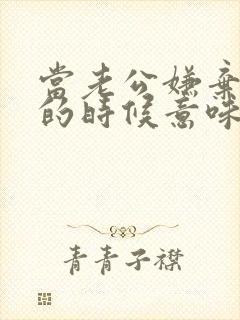 當老公嫌棄
的時候意味
青青子襟